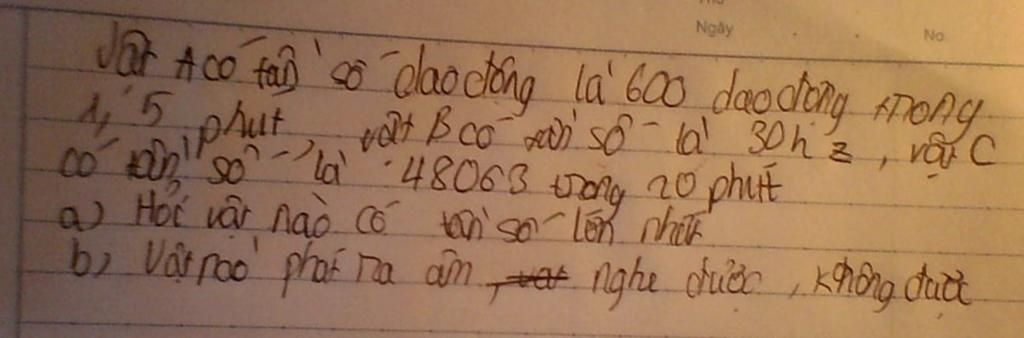 Ngày No
Vật A có tần số dao động là 600 dao động trong
1,5 phút, vật B có tần số là 30hz, vật C
có tần số là 48063 trong 20 phút
a) Hỏi vật nào có tần số lớn nhất
b) Vật nào phát ra âm, nghe được, không được